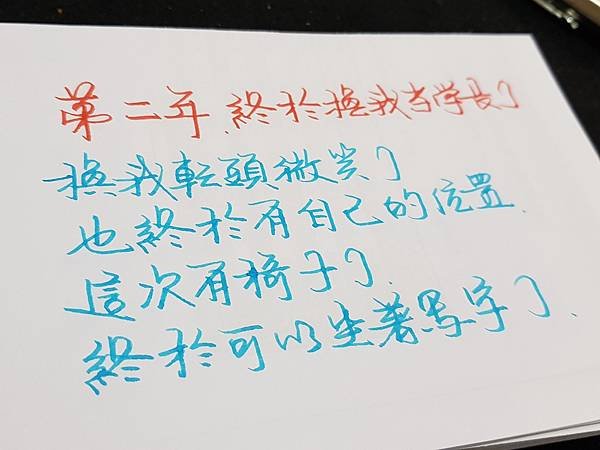 第二年、終於換我当学長了
換我転頭微笑了
也終於有自己的位置、
這次有椅子了、
終於可以坐著写字了、